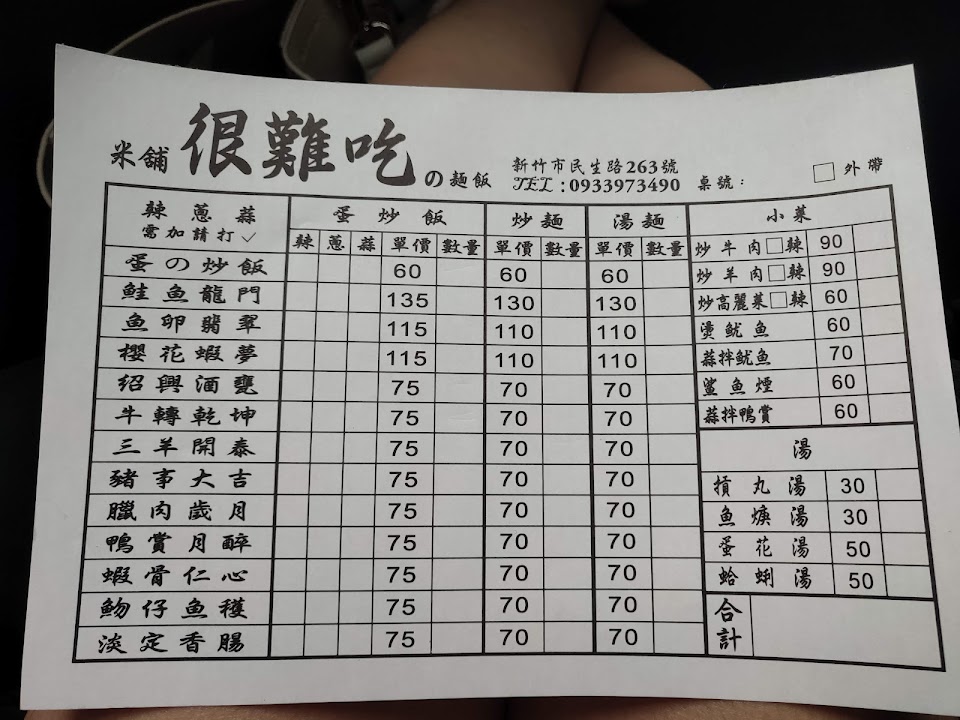 米舖 很難吃 の麵飯
新竹市民生路263號
TEL:0933973490 桌號: □外帶
辣蔥蒜 蛋炒飯 炒麵 湯麵
需加請打✓ 辣 蔥 蒜 單價 數量 單價 數量 單價 數量
蛋の炒飯 60 60 60
鮭魚龍門 135 130 130
魚卵翡翠 115 110 110
櫻花蝦夢 115 110 110
紹興酒甕 75 70 70
牛轉乾坤 75 70 70
三羊開泰 75 70 70
豬事大吉 75 70 70
臘肉歲月 75 70 70
鴨賞月醉 75 70 70
蝦骨仁心 75 70 70
魩仔魚穫 75 70 70
淡定香腸 75 70 70
小菜
炒牛肉□辣 90
炒羊肉□辣 90
炒高麗菜□辣 60
燙魷魚 60
蒜拌魷魚 70
鯊魚煙 60
蒜拌鴨賞 60
湯
摃丸湯 30
魚焿湯 30
蛋花湯 50
蛤蜊湯 50
合計